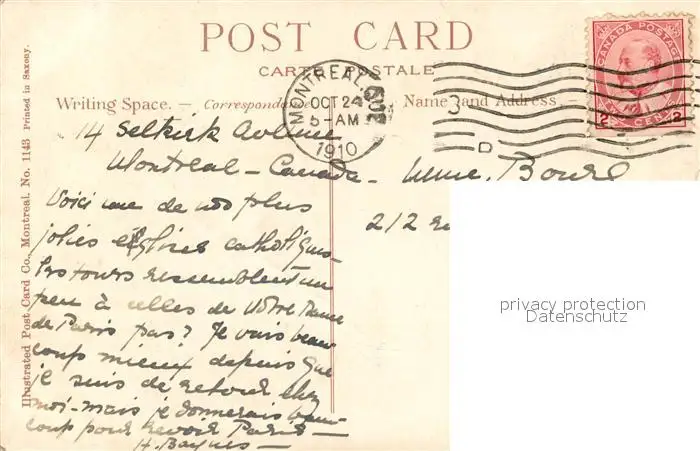 POST CARD
CARTE POSTALE
Writing Space. — Correspondance
Name and Address. —
MONTREAL
OCT 24
5-AM
1910
CANADA POSTAGE
2 CENTS 2
14 Selkirk Avenue
Montreal - Canada -
Voici une de nos plus
jolies églises catholiques -
Les tours ressemblent un
peu à celles de Notre Dame
de Paris pas? Je vais beau
coup mieux depuis que
je suis de retour chez
moi - mais je donnerais beau
coup pour revoir Paris -
H. Baynes -
Mme.
212
privacy protection
Datenschutz
Illustrated Post Card Co., Montreal. No. 1143 Printed in Saxony.